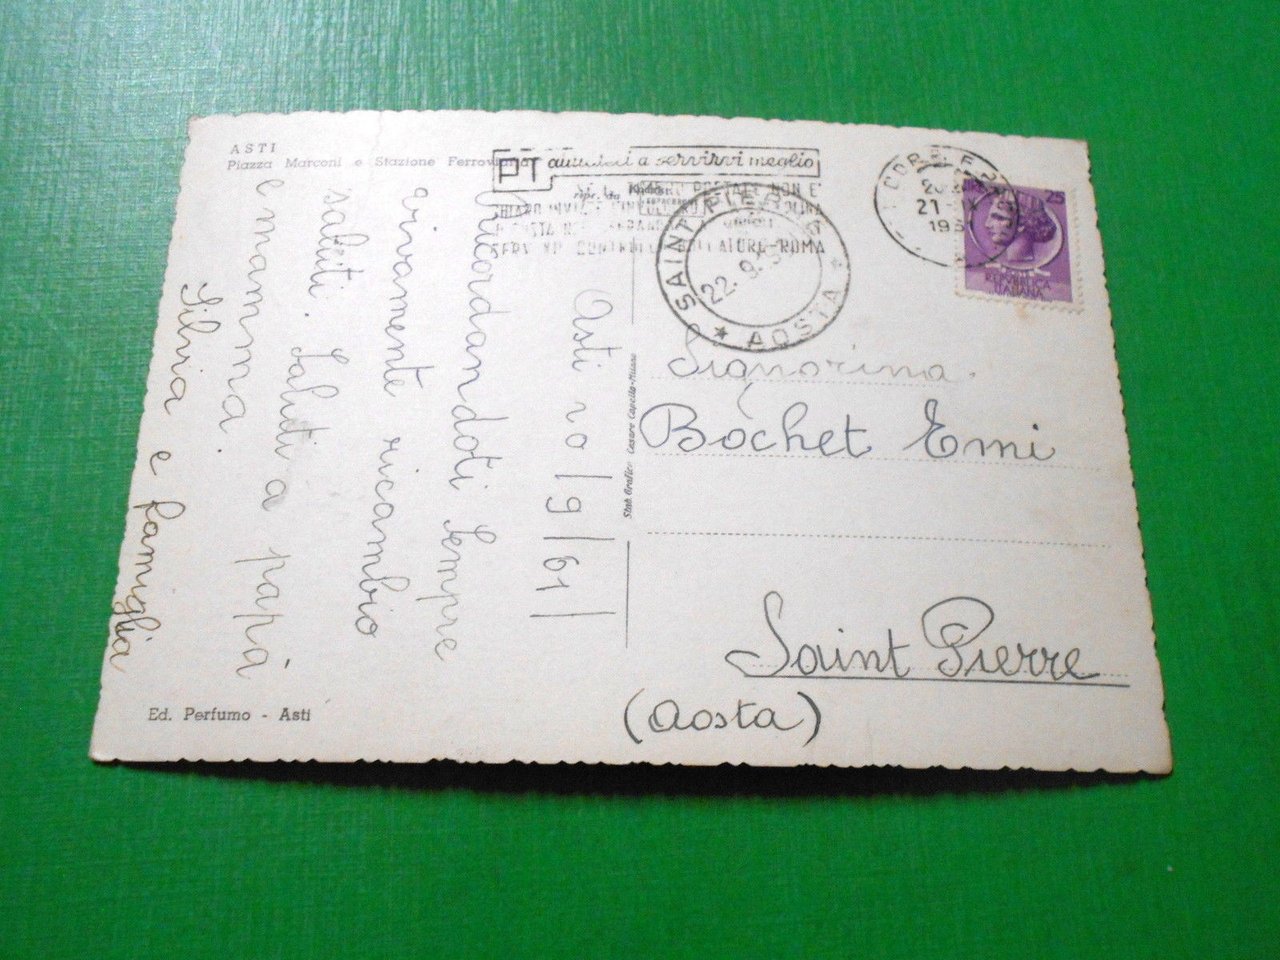 ASTI
Piazza Marconi e Stazione Ferroviaria
PT aiutateci a servirvi meglio
SE POSTALE NON E'
CHIARO
SERV ROMA
SAINT PIERRE
22.9.
* AOSTA *
21
196
25
REPUBBLICA
ITALIANA
Asti 20/9/61
Ricordandoti sempre
vivamente ricambio
saluti. Saluti a papá
e mamma.
Silvia e famiglia
Stab. Grafico Cesare Capello-Milano
Signorina.
Bochet Emi
Saint Pierre
(Aosta)
Ed. Perfumo - Asti